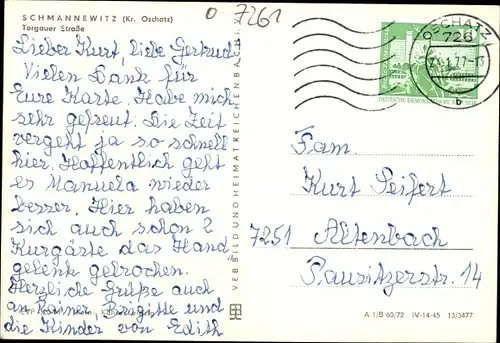 o 7261
SCHMANNEWITZ (Kr. Oschatz)
Torgauer Straße
Lieber Kurt, liebe Gertrud
Vielen Dank für
Eure Karte. Habe mich
sehr gefreut. Die Zeit
vergeht ja so schnell
hier. Hoffentlich geht
es Manuela wieder
besser. Hier haben
sich auch schon 2
Kurgäste das Hand
gelenk gebrochen.
Herzliche Grüße auch
an Rainer, Brigitte und
die Kinder von Edith
VEB BILD UND HEIMAT REICHENBACH I. V.
OSCHATZ 1
726
77-13
b
DEUTSCHE DEMOKRATISCHE REPUBLIK
Fam
Kurt Seifert
7251 Altenbach
Pausitzerstr. 14
A 1/B 60/72 IV-14-45 13/3477